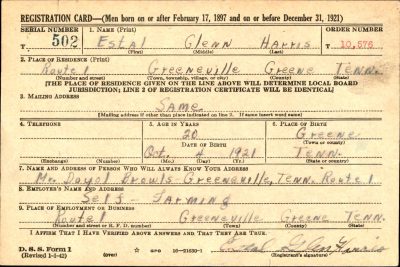 REGISTRATION CARD—(Men born on or after February 17, 1897 and on or before December 31, 1921)
SERIAL NUMBER
1. NAME (Print)
ORDER NUMBER
T 502
Estal Glenn Harris
10,576
(First) (Middle) (Last)
2. PLACE OF RESIDENCE (Print)
Route 1 Greeneville Greene Tenn.
(Number and street) (Town, township, village, or city) (County) (State)
[THE PLACE OF RESIDENCE GIVEN ON THE LINE ABOVE WILL DETERMINE LOCAL BOARD
JURISDICTION; LINE 2 OF REGISTRATION CERTIFICATE WILL BE IDENTICAL]
3. MAILING ADDRESS
Same
[Mailing address if other than place indicated on line 2. If same insert word same]
4. TELEPHONE
5. AGE IN YEARS
6. PLACE OF BIRTH
20
Greene
DATE OF BIRTH
(Town or county)
Oct. 4 1921
Tenn.
(Exchange) (Number)
(Mo.) (Day) (Yr.)
(State or country)
7. NAME AND ADDRESS OF PERSON WHO WILL ALWAYS KNOW YOUR ADDRESS
Mr. Doyal Brawls-Greeneville, Tenn. Route 1
8. EMPLOYER'S NAME AND ADDRESS
Self - Farming
9. PLACE OF EMPLOYMENT OR BUSINESS
Route 1 Greeneville Greene Tenn.
(Number and street or R. F. D. number) (Town) (County) (State)
I AFFIRM THAT I HAVE VERIFIED ABOVE ANSWERS AND THAT THEY ARE TRUE.
D. S. S. Form 1
(Revised 1-1-42) (over) GPO 16—21630-1
Estal Glenn Harris
(Registrant's signature)